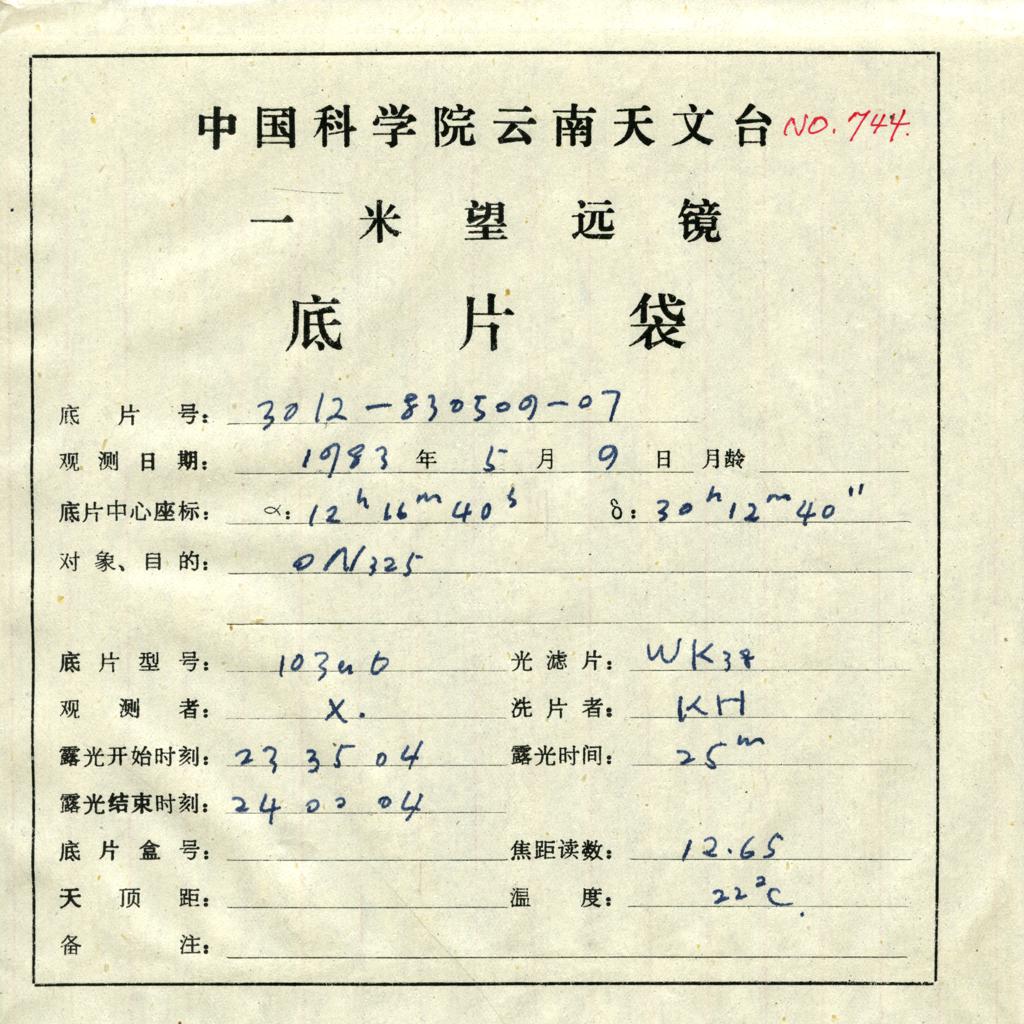 中国科学院云南天文台 NO.744.
一米望远镜
底片袋
底片号： 3012-830509-07
观测日期： 1983 年 5 月 9 日 月龄
底片中心座标： α： 12h 16m 40s δ： 30h 12m 40"
对象、目的： ON325
底片型号： 103a0 光滤片： WK38
观测者： X. 洗片者： KH
露光开始时刻： 23 35 04 露光时间： 25m
露光结束时刻： 24 00 04
底片盒号： 焦距读数： 12.65
天顶距： 温度： 22°C.
备注：